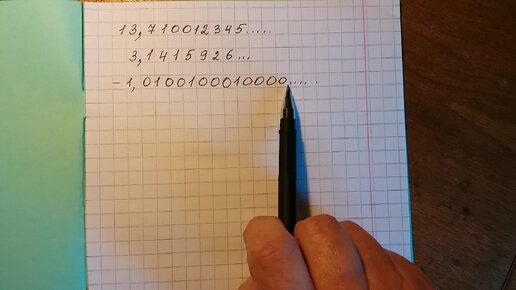 13,710012345.....
3,1415926...
-1,0100100010000.....